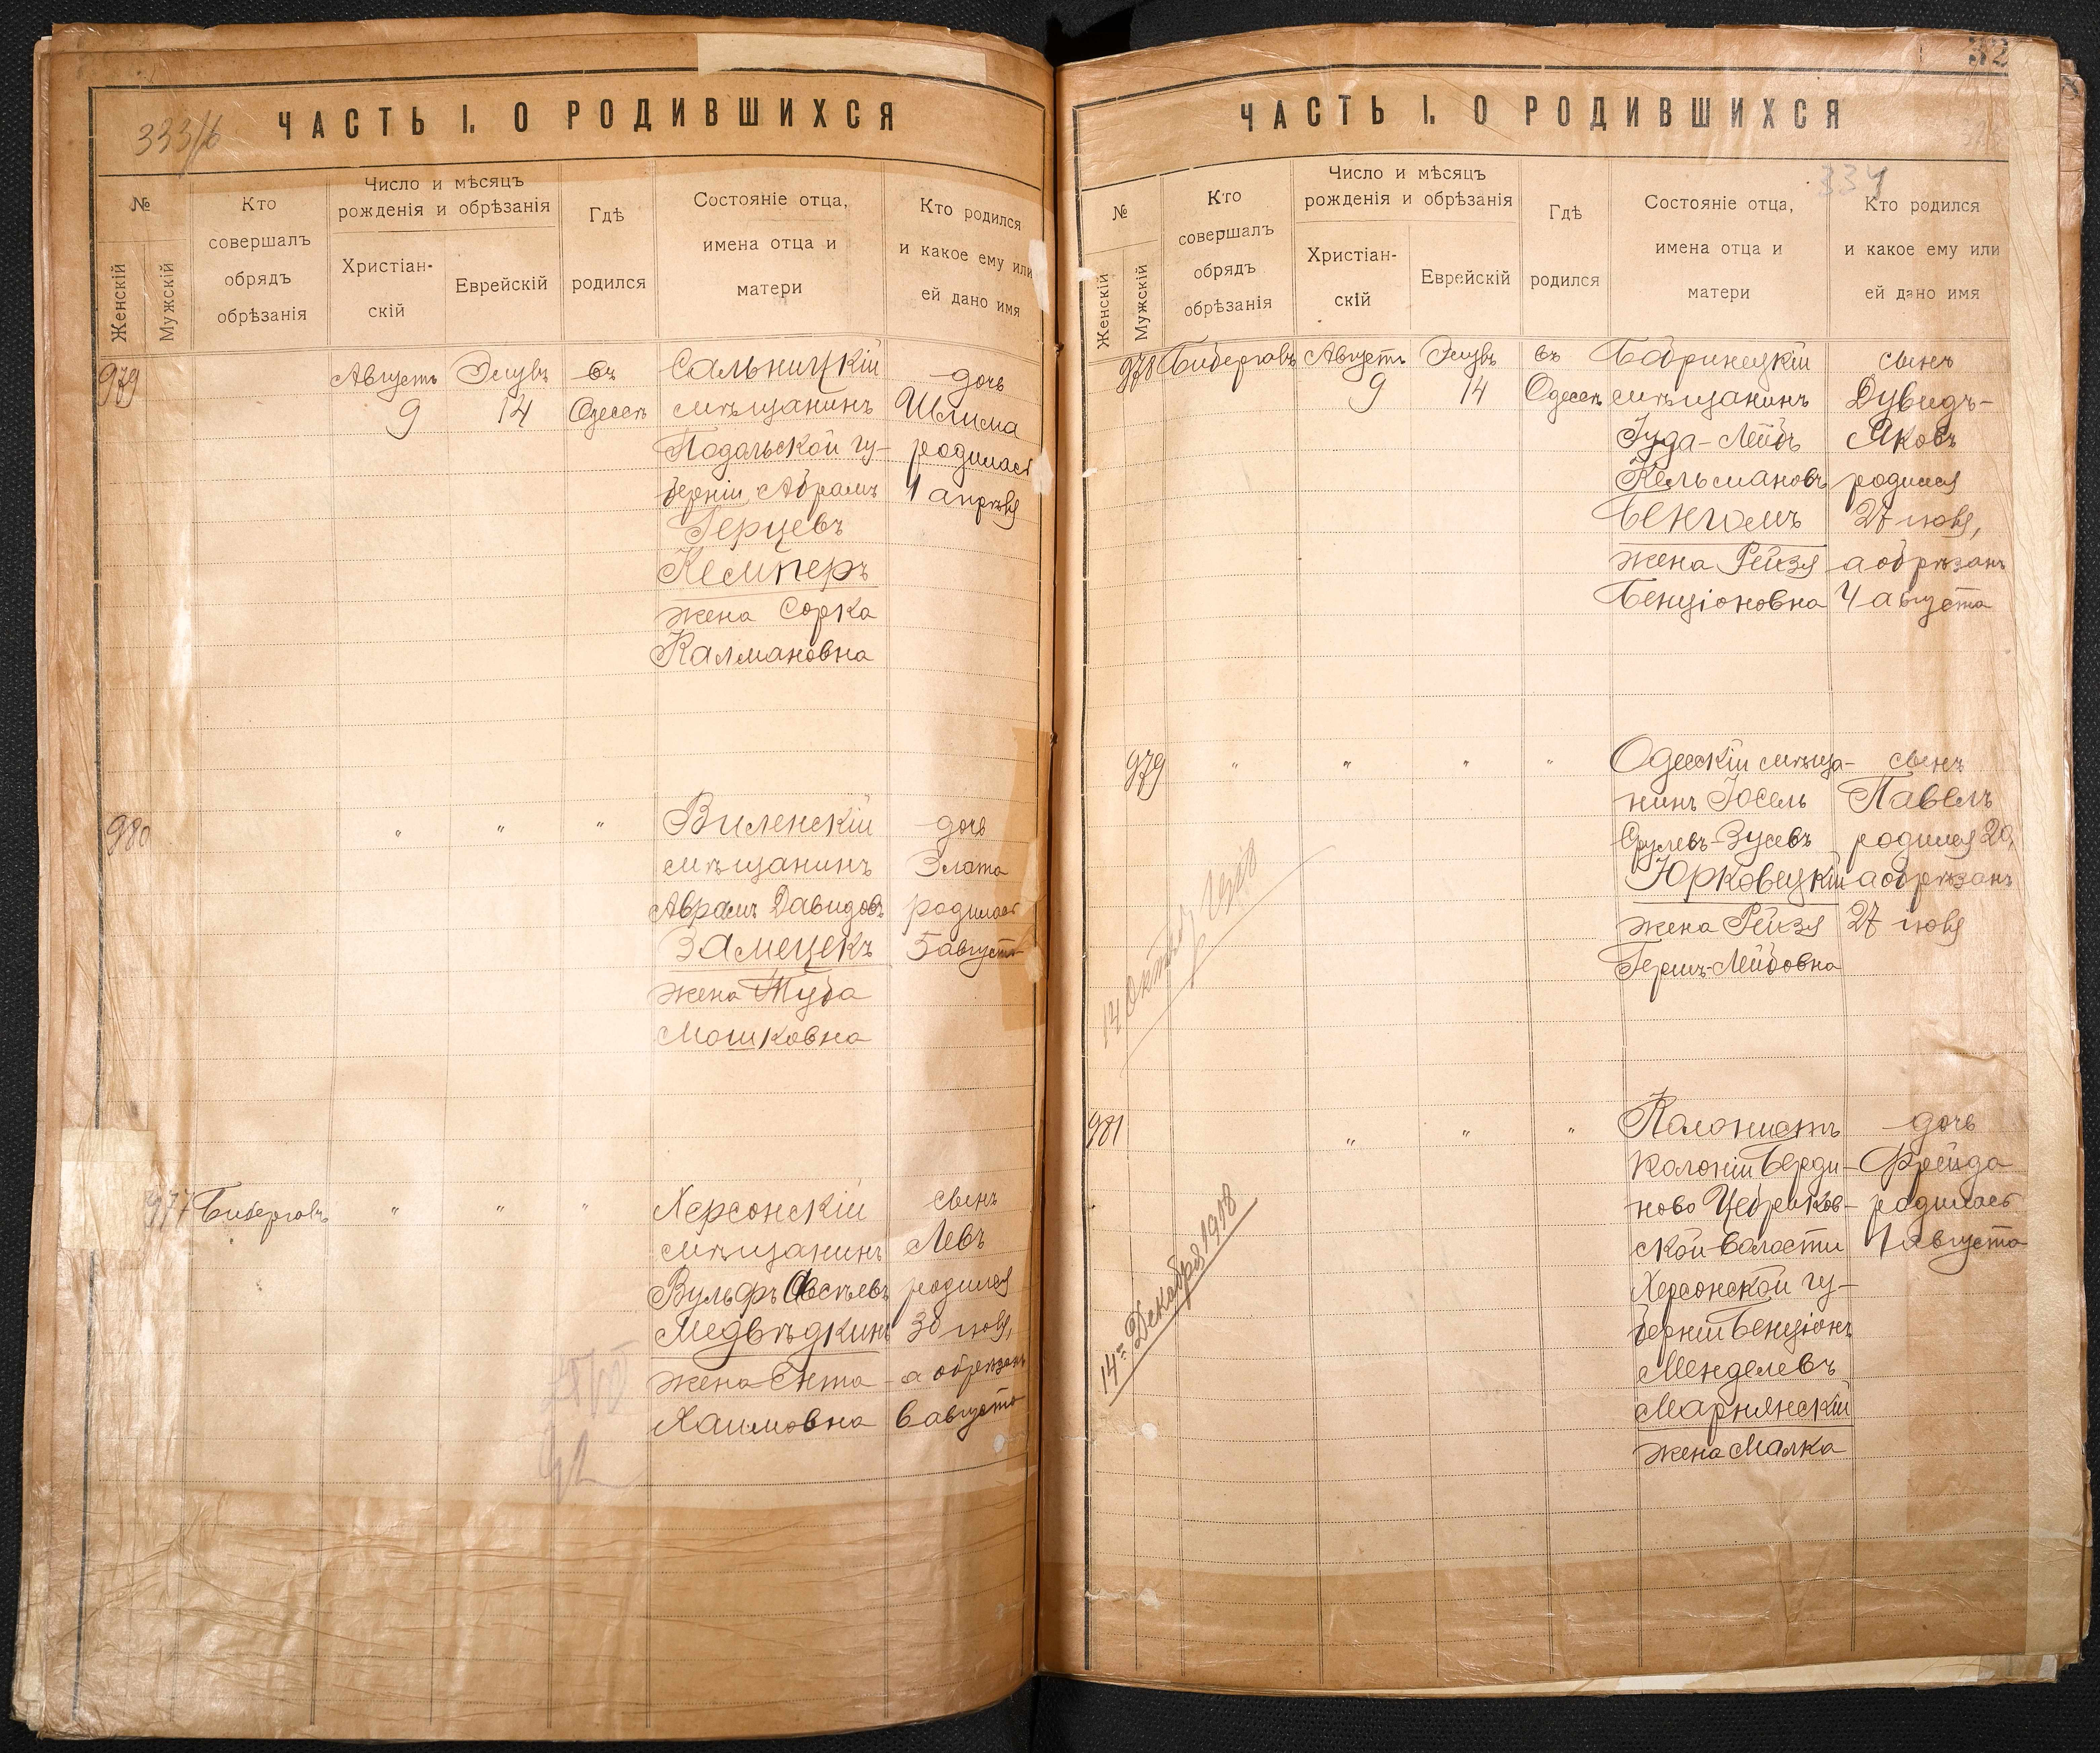 333/б
ЧАСТЬ I. О РОДИВШИХСЯ
№
Женскій
Мужскій
Кто
совершалъ
обрядъ
обрѣзанія
Число и мѣсяцъ
рожденія и обрѣзанія
Христіан-
скій
Еврейскій
Гдѣ
родился
Состояніе отца,
имена отца и
матери
Кто родился
и какое ему или
ей дано имя
979 Августъ Элулъ въ Сальницкій дочь
9 14 Одессѣ мѣщанинъ
Подольской гу- родилась
берніи Абрамъ 1 апрѣля
Герцевъ
Кемперъ
жена Сорка
Калмановна
980 " " " Виленскій дочь
мѣщанинъ Злата
Аврамъ Давидовъ родилась
Замечекъ 5 августа
жена Туба
Мошковна
977 Бибергалъ " " " Херсонскій сынъ
мѣщанинъ Левъ
Вульфъ родился
Медвѣдкинъ 30 іюля,
жена Ента а обрѣзанъ
Хаимовна 6 августа
32
ЧАСТЬ I. О РОДИВШИХСЯ
334
№
Женскій
Мужскій
Кто
совершалъ
обрядъ
обрѣзанія
Число и мѣсяцъ
рожденія и обрѣзанія
Христіан-
скій
Еврейскій
Гдѣ
родился
Состояніе отца,
имена отца и
матери
Кто родился
и какое ему или
ей дано имя
978 Бибергалъ Августъ Элулъ въ Бобринецкій сынъ
9 14 Одессѣ мѣщанинъ Дувидъ-
Іуда-Лейбъ Яковъ
Кельмановъ родился
27 іюля,
жена Рейзя а обрѣзанъ
Бенціоновна 4 августа
979 " " " " Одесскій мѣща- сынъ
нинъ Іосель Павелъ
Срулевъ-Зусевъ родился 20,
Юрковецкій а обрѣзанъ
жена Рейзя 27 іюля
Гершъ-Лейбовна
14 Октября
981 " " " Колонистъ дочь
колоніи Берди- Фрейда
ново Цебриков- родилась
ской волости 1 августа
Херсонской гу-
берніи Бенціонъ
Менделевъ
Марнянскій
жена Малка
14го Декабря 1918